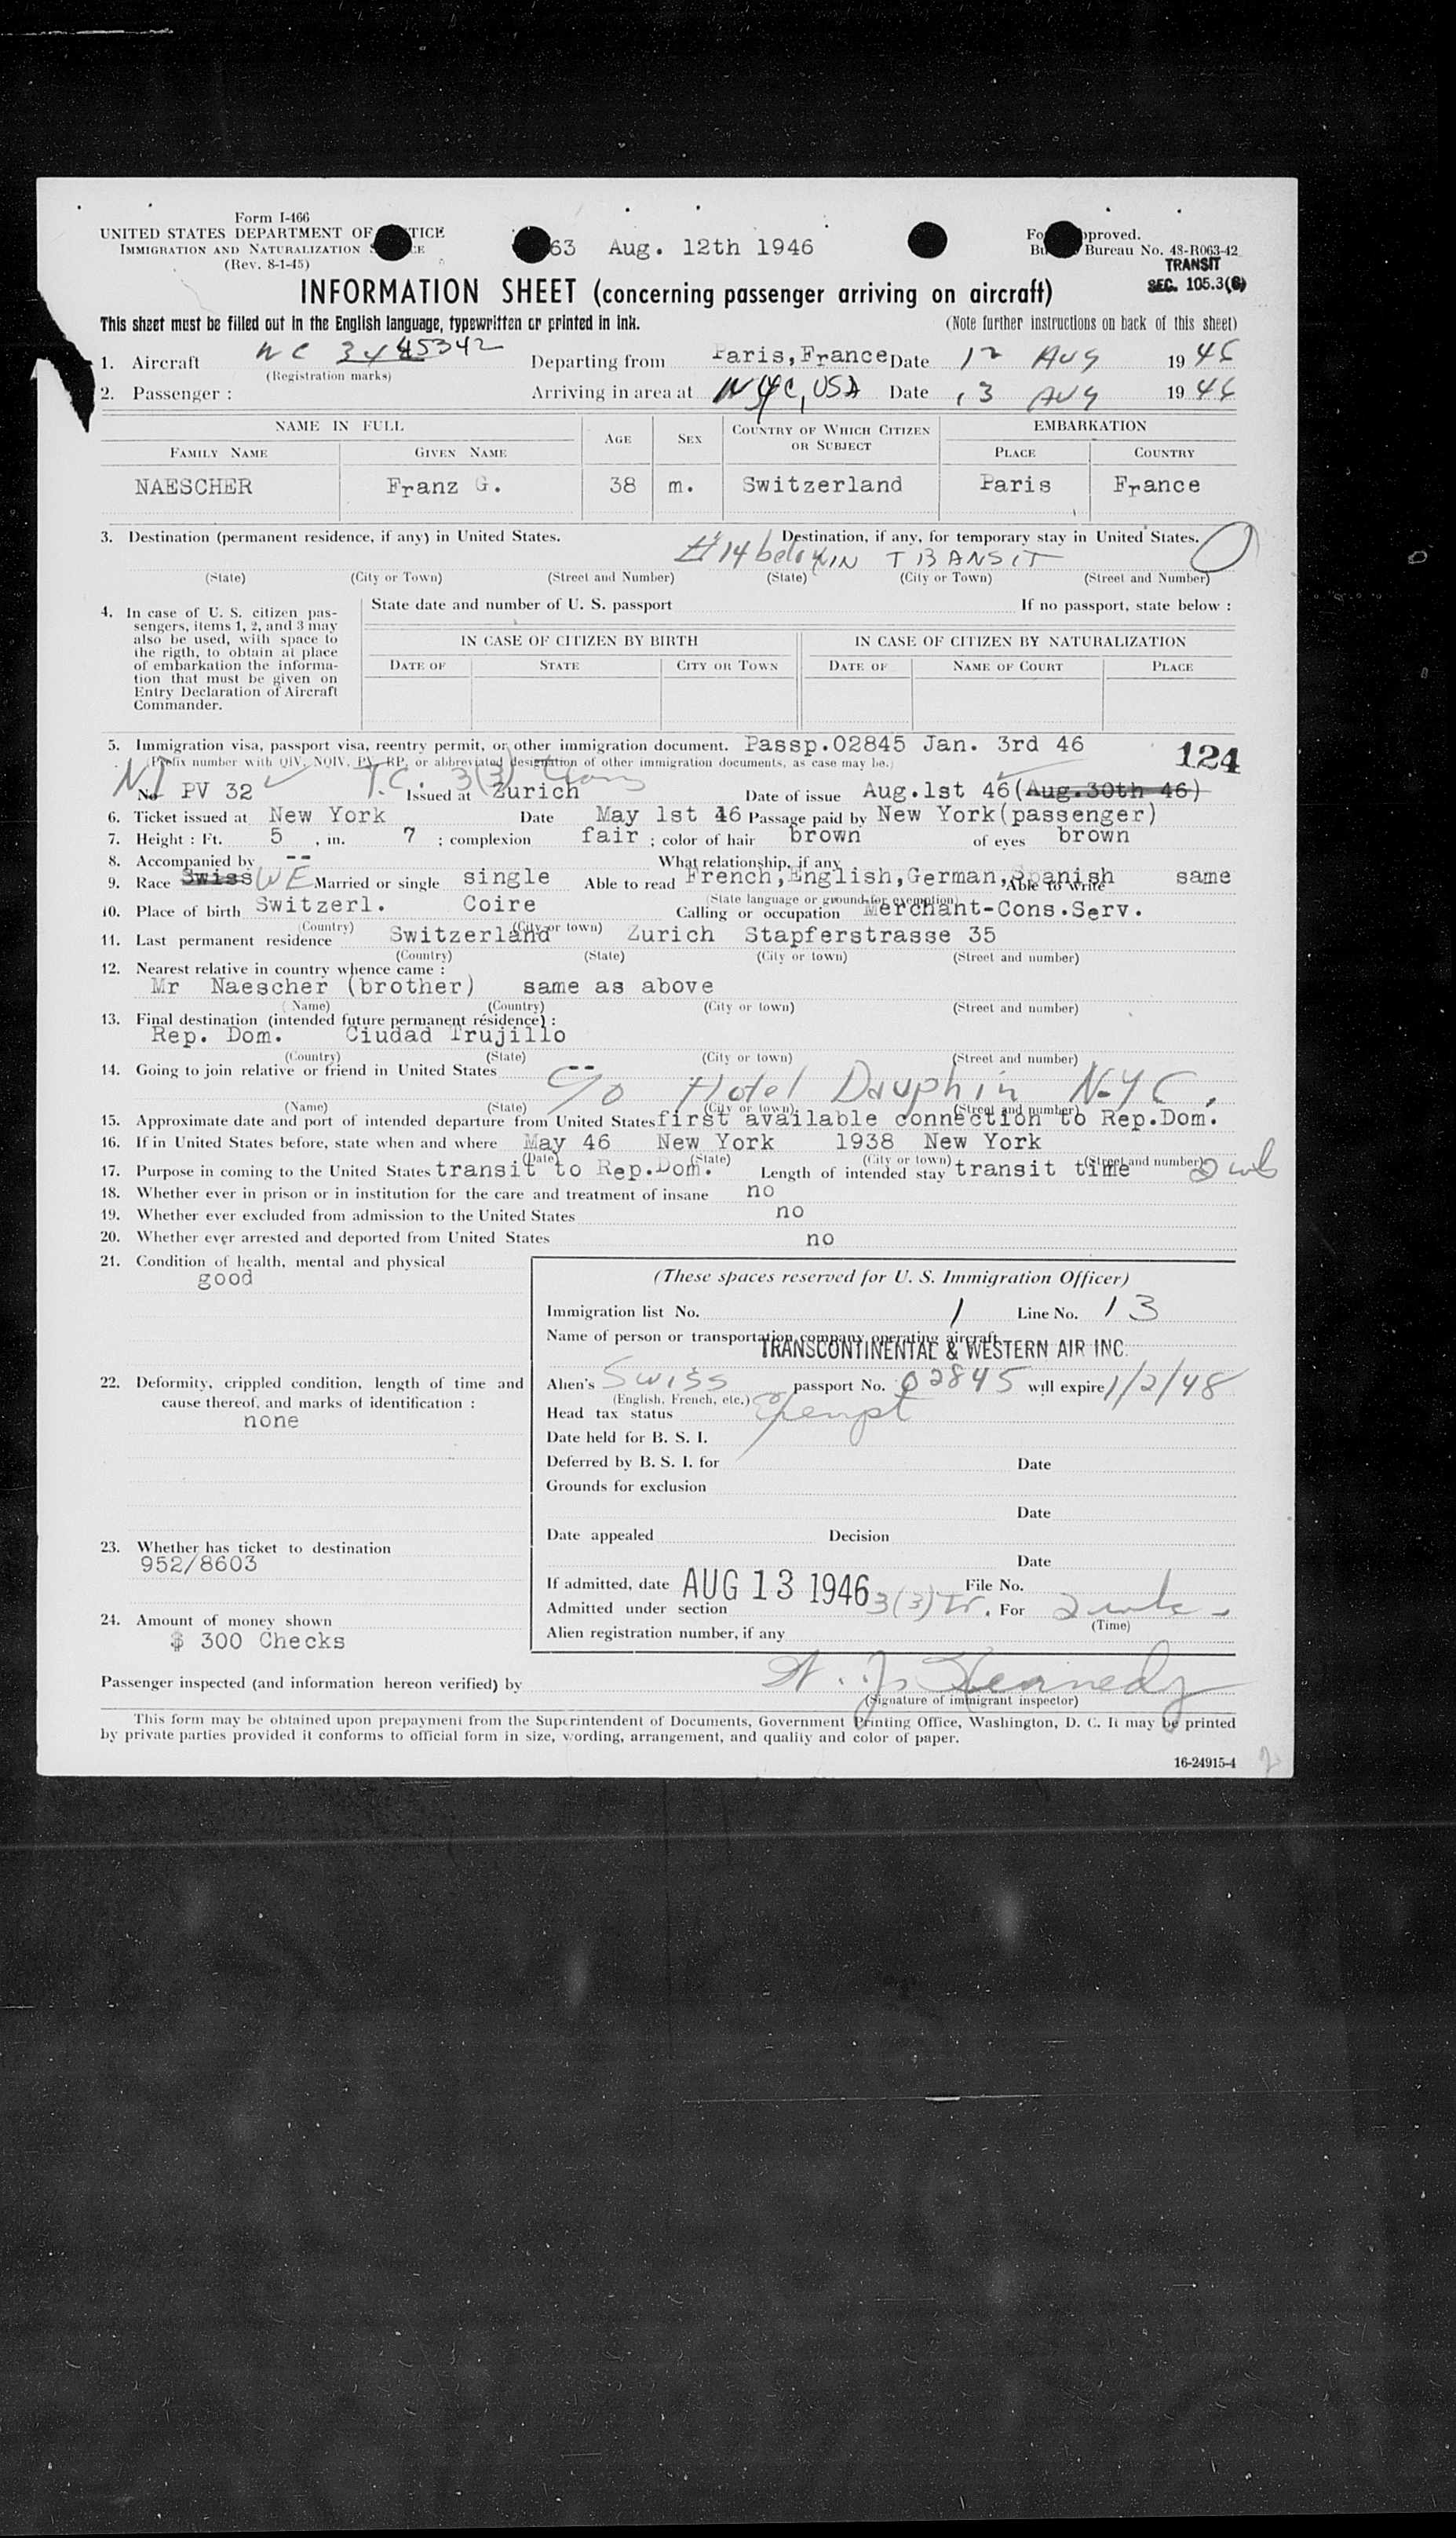 Form I-466
UNITED STATES DEPARTMENT OF TICE
IMMIGRATION AND NATURALIZATION
(Rev. 8-1-45)
63 Aug. 12th 1946
pproved.
Bureau No. 43-R063-42
TRANSIT
SEC. 105.3(6)
INFORMATION SHEET (concerning passenger arriving on aircraft)
This sheet must be filled out in the English language, typewritten or printed in ink.
(Note further instructions on back of this sheet)
1. Aircraft NC 45342 Departing from Paris, France Date 12 Aug 1946
(Registration marks)
2. Passenger : Arriving in area at NYC, USA Date 13 Aug 1946
NAME IN FULL AGE SEX COUNTRY OF WHICH CITIZEN OR SUBJECT EMBARKATION
FAMILY NAME GIVEN NAME PLACE COUNTRY
NAESCHER Franz G. 38 m. Switzerland Paris France
3. Destination (permanent residence, if any) in United States. Destination, if any, for temporary stay in United States.
#14 below IN TRANSIT
(State) (City or Town) (Street and Number) (State) (City or Town) (Street and Number)
4. In case of U. S. citizen pas-
sengers, items 1, 2, and 3 may
also be used, with space to
the rigth, to obtain at place
of embarkation the informa-
tion that must be given on
Entry Declaration of Aircraft
Commander.
State date and number of U. S. passport If no passport, state below :
IN CASE OF CITIZEN BY BIRTH IN CASE OF CITIZEN BY NATURALIZATION
DATE OF STATE CITY OR TOWN DATE OF NAME OF COURT PLACE
5. Immigration visa, passport visa, reentry permit, or other immigration document. Passp.02845 Jan. 3rd 46
(Prefix number with QIV, NQIV, PV, RP, or abbreviated designation of other immigration documents, as case may be.)
124
No PV 32 T.C. 3(3) Issued at Zurich Date of issue Aug.1st 46(Aug.30th 46)
6. Ticket issued at New York Date May 1st 46 Passage paid by New York(passenger)
7. Height : Ft. 5 , in. 7 ; complexion fair ; color of hair brown of eyes brown
8. Accompanied by -- What relationship, if any
9. Race Swiss WE Married or single single Able to read French,English,German,Spanish Able to write same
(State language or ground for exemption)
10. Place of birth Switzerl. Coire Calling or occupation Merchant-Cons.Serv.
(Country) (City or town)
11. Last permanent residence Switzerland Zurich Stapferstrasse 35
(Country) (State) (City or town) (Street and number)
12. Nearest relative in country whence came :
Mr Naescher (brother) same as above
(Name) (Country) (City or town) (Street and number)
13. Final destination (intended future permanent résidence) :
Rep. Dom. Ciudad Trujillo
(Country) (State) (City or town) (Street and number)
14. Going to join relative or friend in United States --
c/o Hotel Dauphin N.Y.C.
(Name) (State) (City or town) (Street and number)
15. Approximate date and port of intended departure from United States first available connection to Rep.Dom.
16. If in United States before, state when and where May 46 New York 1938 New York
(Date) (State) (City or town) (Street and number)
17. Purpose in coming to the United States transit to Rep.Dom. Length of intended stay transit time 2 wks
18. Whether ever in prison or in institution for the care and treatment of insane no
19. Whether ever excluded from admission to the United States no
20. Whether ever arrested and deported from United States no
21. Condition of health, mental and physical
good
22. Deformity, crippled condition, length of time and
cause thereof, and marks of identification :
none
23. Whether has ticket to destination
952/8603
24. Amount of money shown
$ 300 Checks
(These spaces reserved for U. S. Immigration Officer)
Immigration list No. 1 Line No. 13
Name of person or transportation company operating aircraft
TRANSCONTINENTAL & WESTERN AIR INC.
Alien's Swiss passport No. 02845 will expire 1/2/48
(English, French, etc.)
Head tax status Exempt
Date held for B. S. I.
Deferred by B. S. I. for Date
Grounds for exclusion
Date
Date appealed Decision
Date
If admitted, date AUG 13 1946 File No.
Admitted under section 3(3) Tr. For 2 wks
(Time)
Alien registration number, if any
Passenger inspected (and information hereon verified) by J. Kennedy
(Signature of immigrant inspector)
This form may be obtained upon prepayment from the Superintendent of Documents, Government Printing Office, Washington, D. C. It may be printed
by private parties provided it conforms to official form in size, wording, arrangement, and quality and color of paper.
16-24915-4